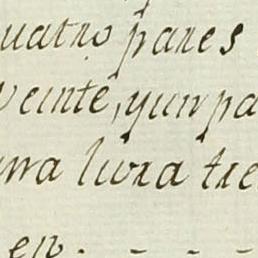 uatro pares
veinte, y un pa
una livra tre
en. - - - -